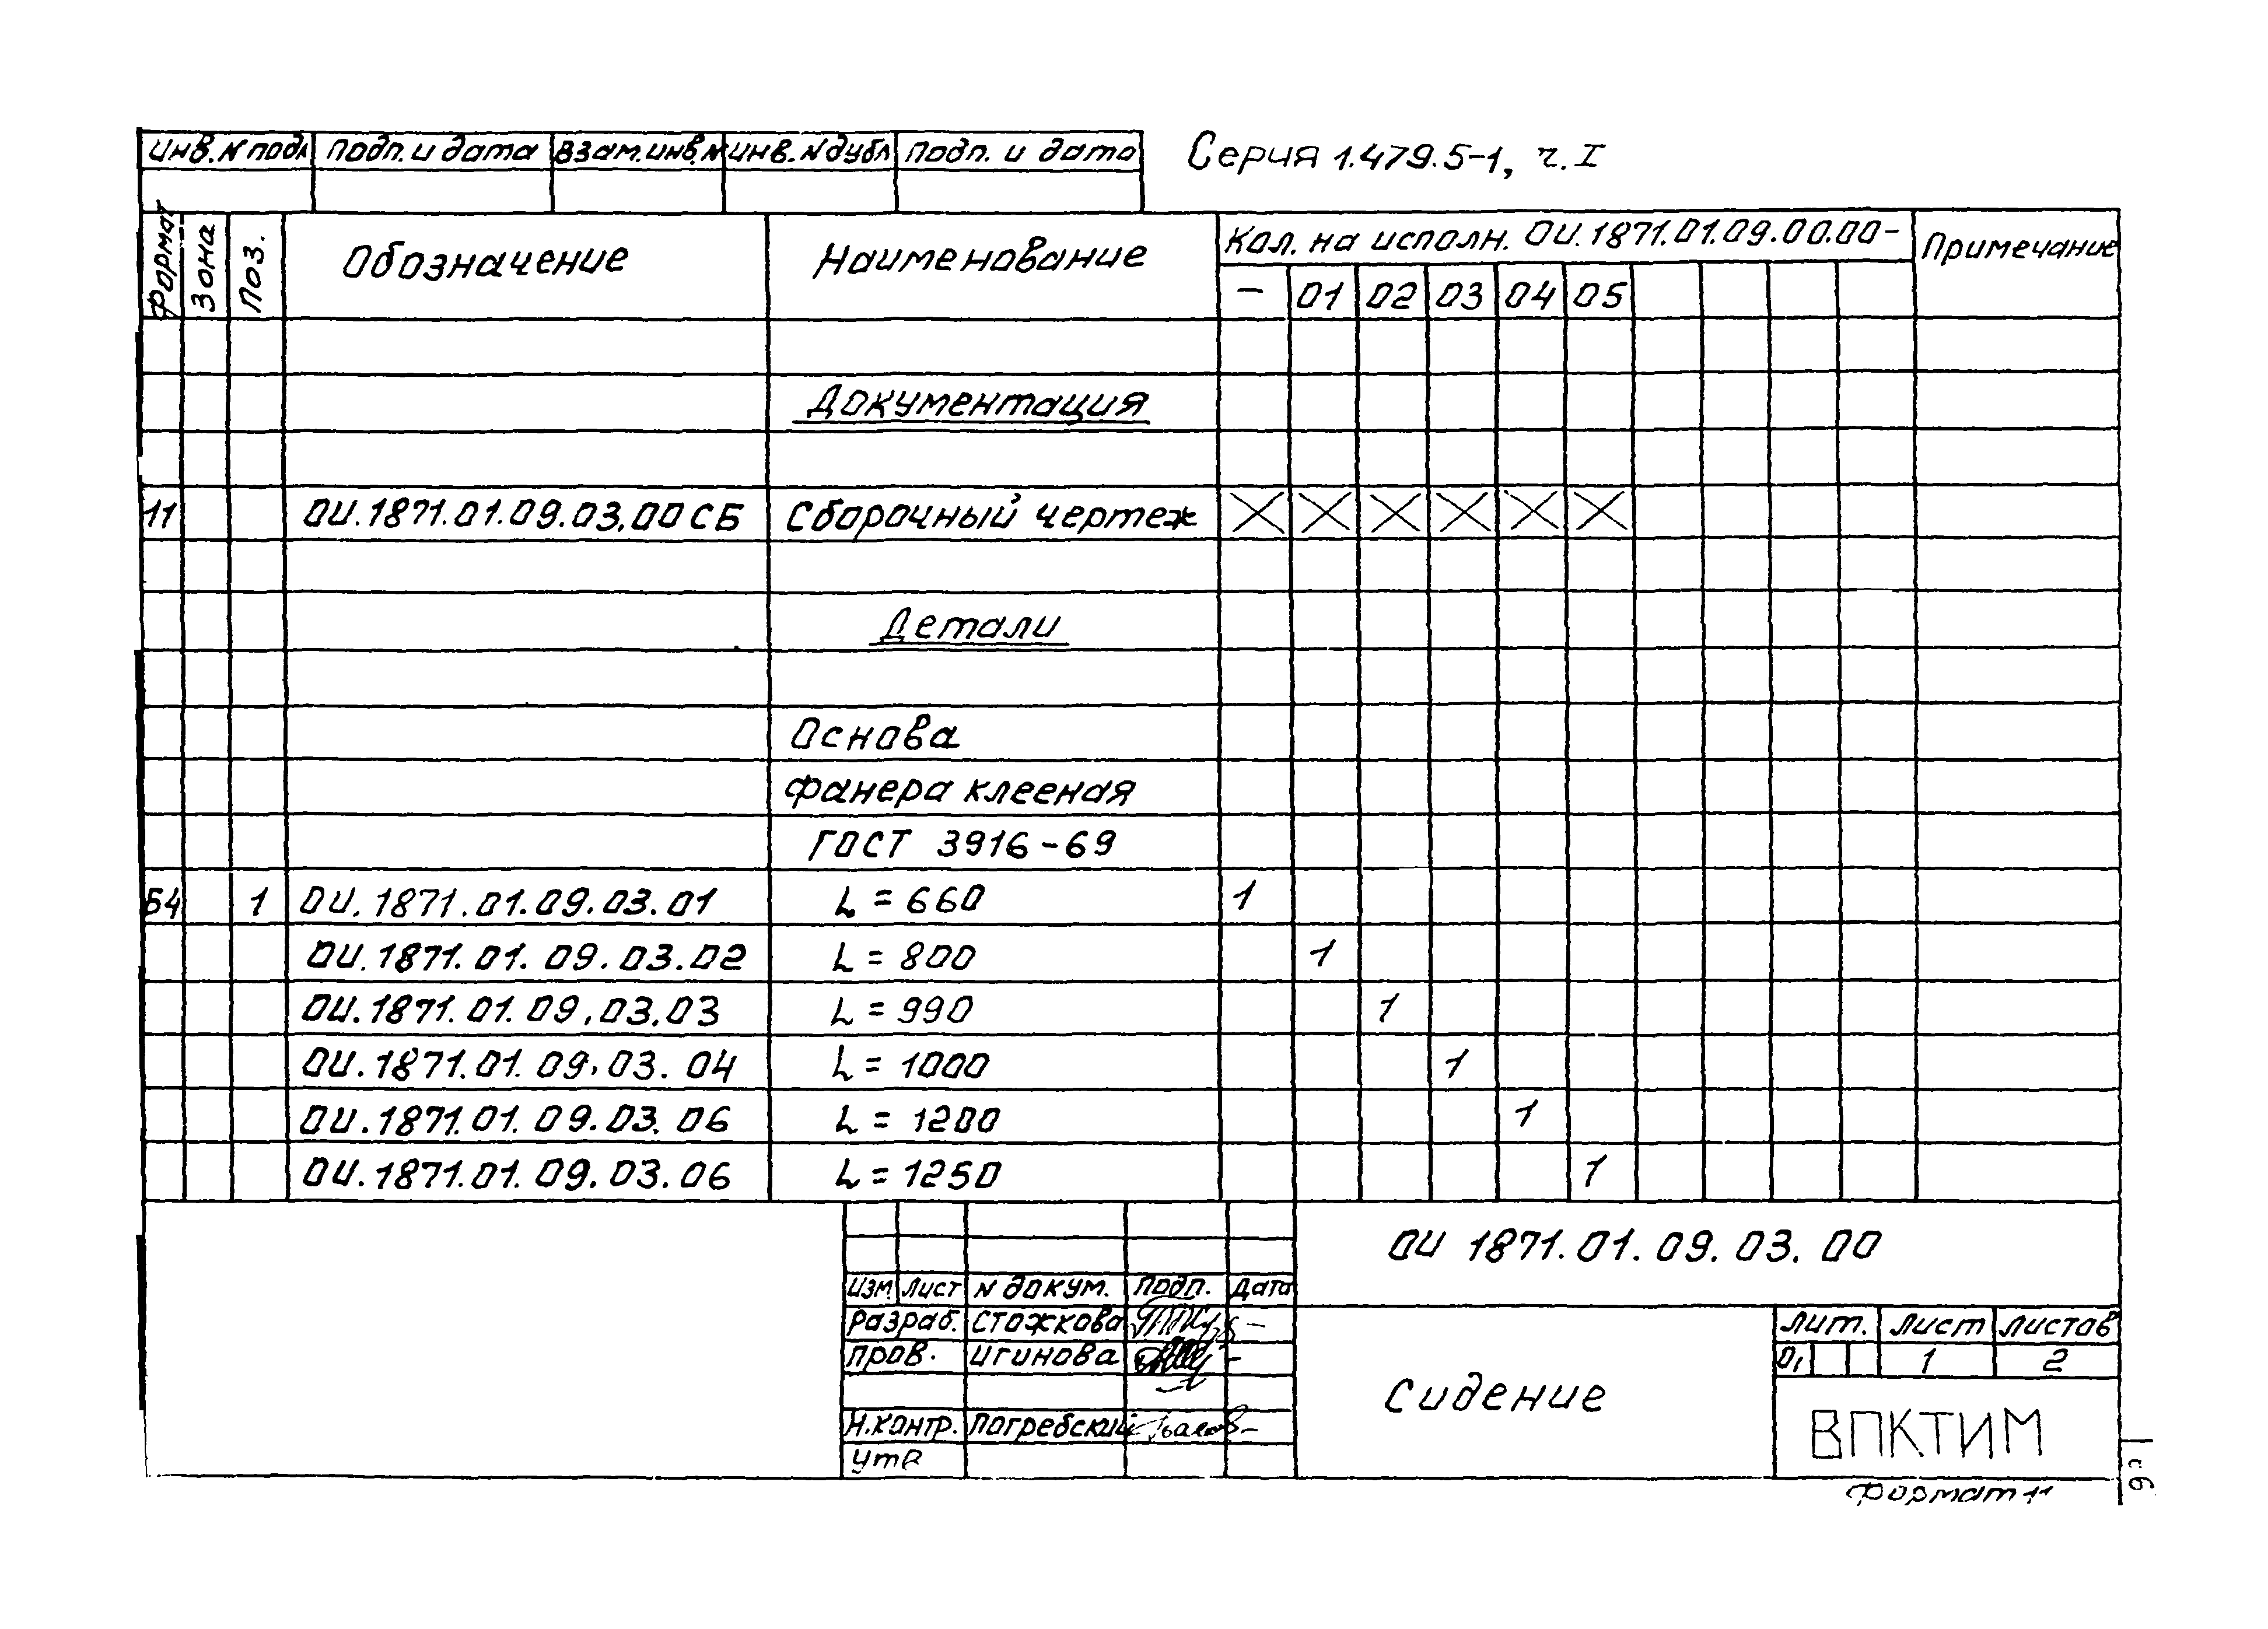 Инв. N подл Подп. и дата Взам. инв. N Инв. N дубл Подп. и дата
Серия 1.479.5-1, ч. I
Формат Зона Поз. Обозначение Наименование Кол. на исполн. ОИ.1871.01.09.00.00- Примечание
- 01 02 03 04 05
Документация
11 ОИ.1871.01.09.03.00 СБ Сборочный чертеж X X X X X X
Детали
Основа
фанера клееная
ГОСТ 3916-69
Б4 1 ОИ.1871.01.09.03.01 L = 660 1
ОИ.1871.01.09.03.02 L = 800 1
ОИ.1871.01.09.03.03 L = 990 1
ОИ.1871.01.09.03.04 L = 1000 1
ОИ.1871.01.09.03.06 L = 1200 1
ОИ.1871.01.09.03.06 L = 1250 1
ОИ 1871.01.09.03.00
Изм Лист N докум. Подп. Дата
Разраб. Стожкова -
Пров. Игинова -
Н.контр. Погребский -
Утв
Сидение
Лит. Лист Листов
О, 1 2
ВПКТИМ
Формат 11